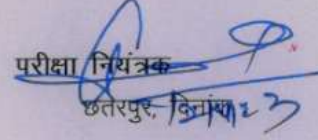 परीक्षा नियंत्रक
छतरपुर, दिनांक